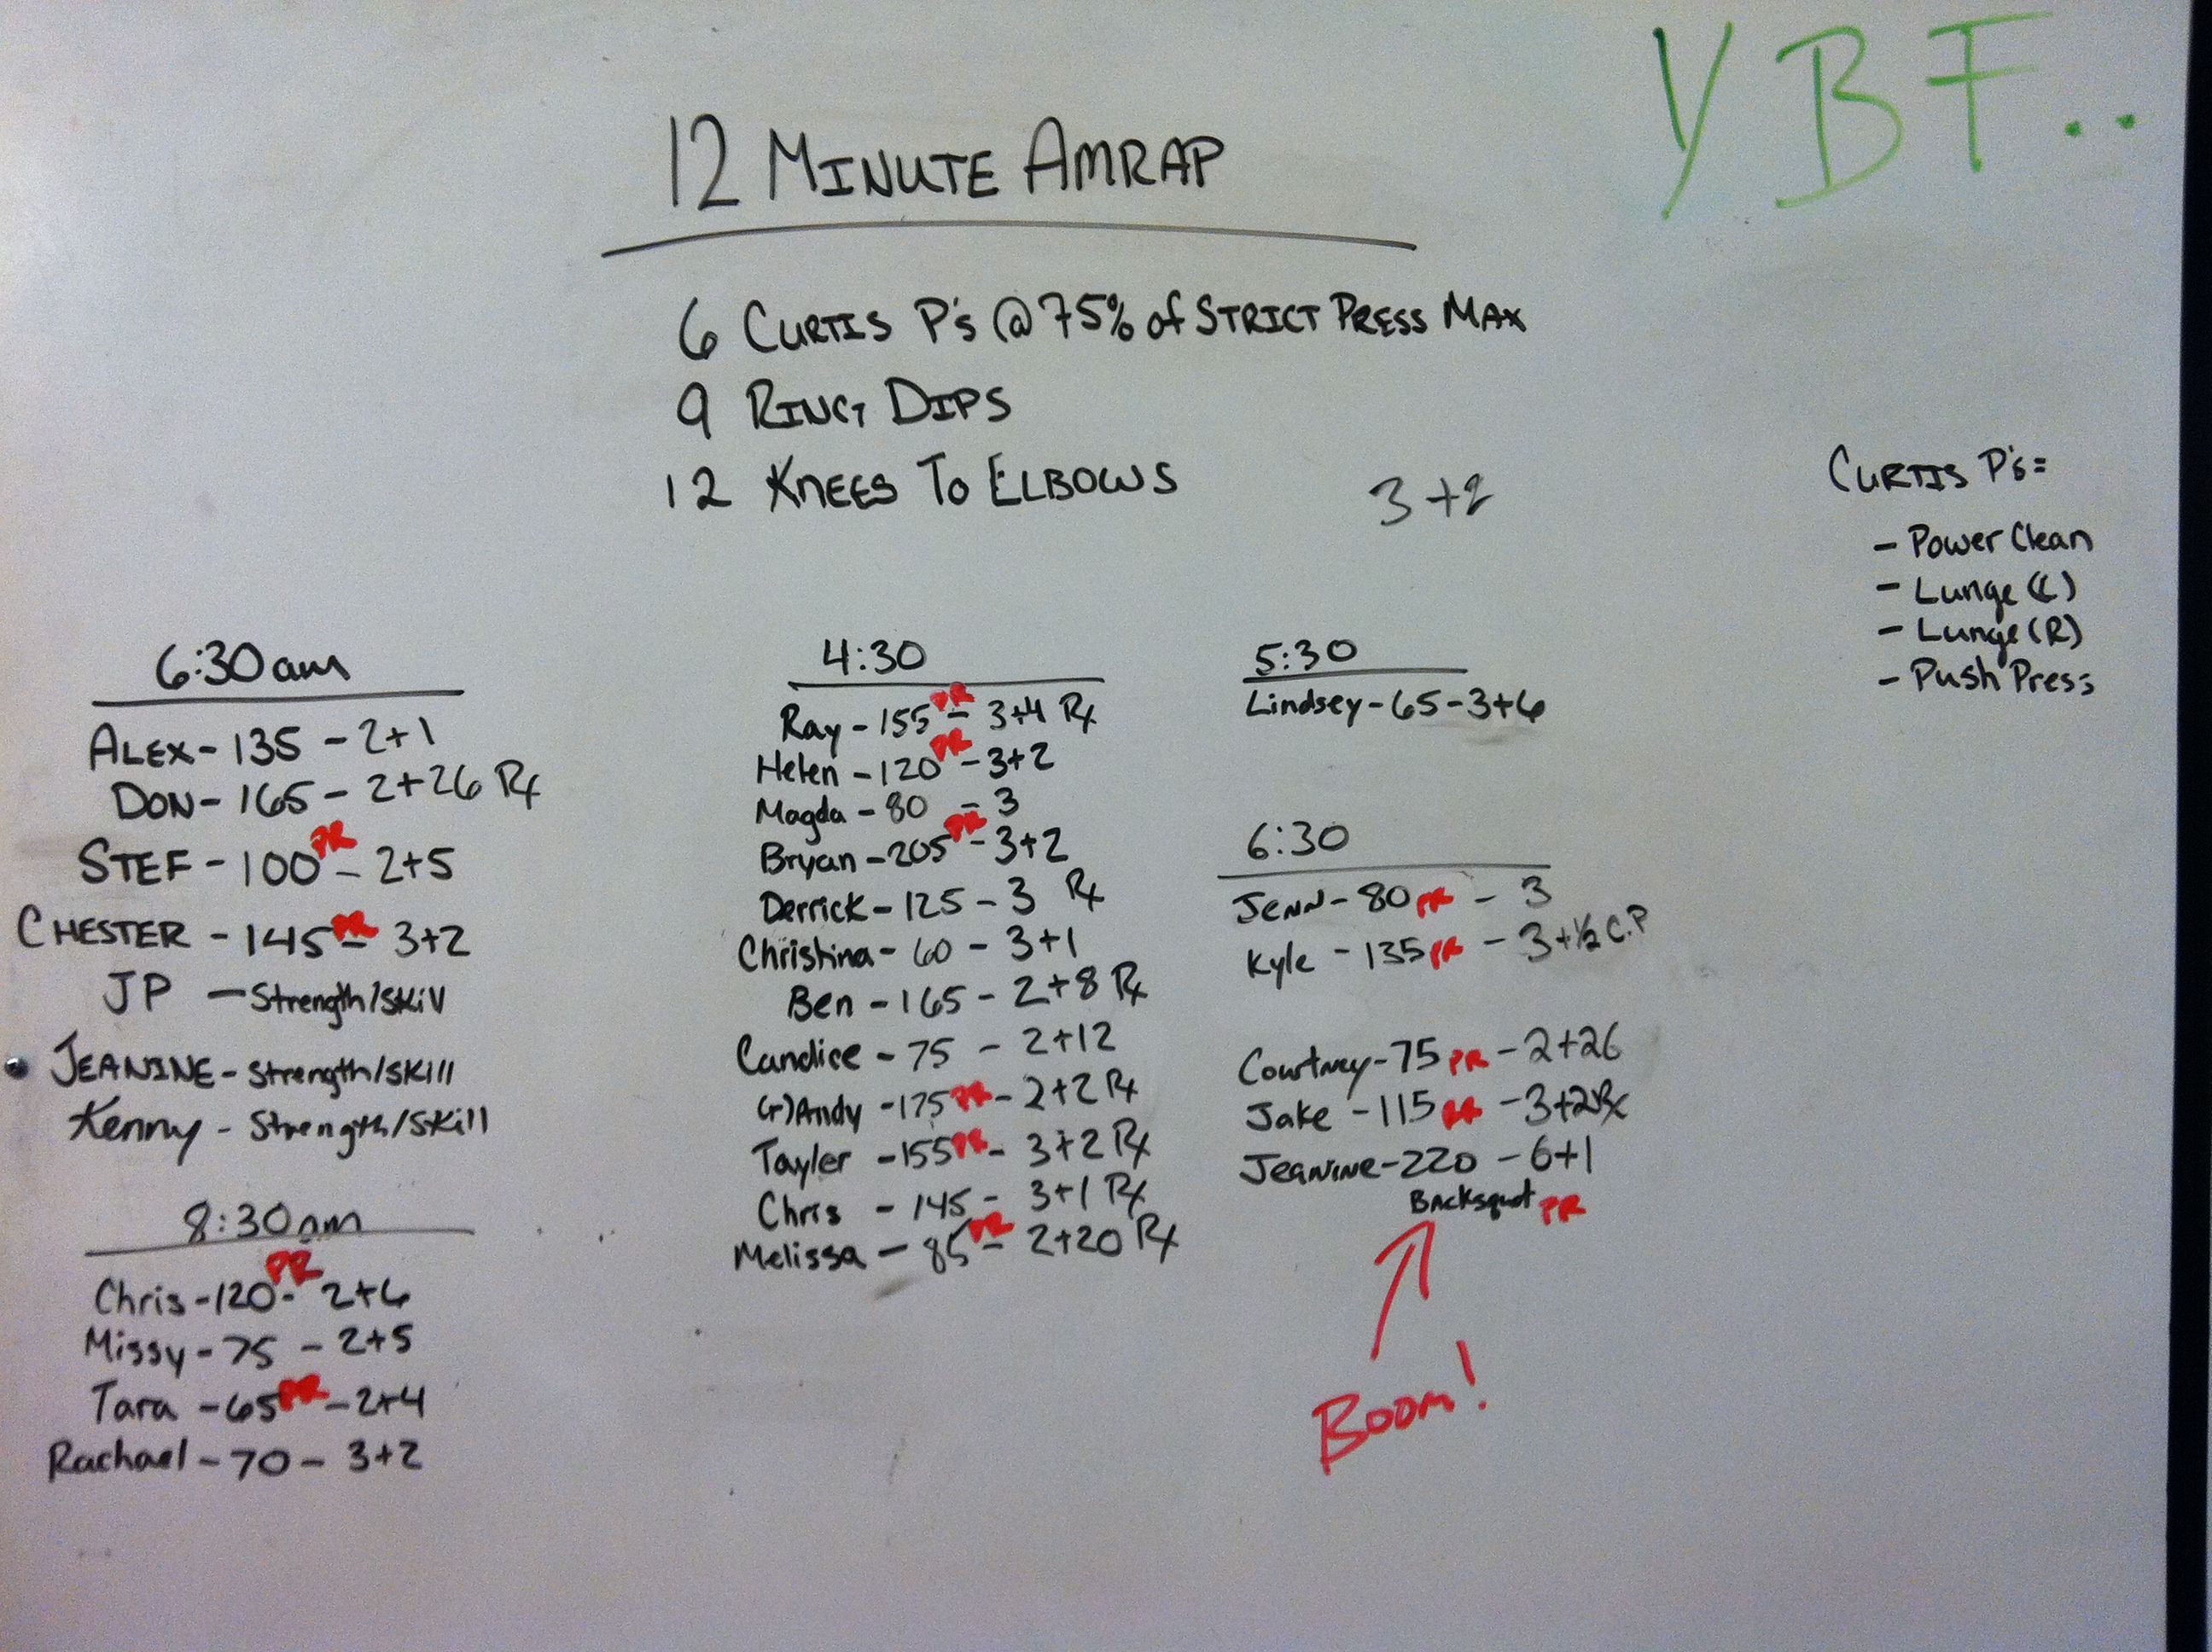 YBF..
12 MINUTE AMRAP
6 CURTIS P's @ 75% of STRICT PRESS MAX
9 RING DIPS
12 KNEES TO ELBOWS
3+2
CURTIS P's =
- Power Clean
- Lunge (L)
- Lunge (R)
- Push Press
6:30am
ALEX - 135 - 2+1
DON - 165 - 2+26 Rx
STEF - 100 PR - 2+5
CHESTER - 145 PR - 3+2
JP - Strength/Skill
JEANINE - Strength/Skill
Kenny - Strength/Skill
8:30am
Chris - 120 PR - 2+6
Missy - 75 - 2+5
Tara - 65 PR - 2+4
Rachael - 70 - 3+2
4:30
Ray - 155 PR - 3+4 Rx
Helen - 120 PR - 3+2
Magda - 80 - 3
Bryan - 205 PR - 3+2
Derrick - 125 - 3 Rx
Christina - 60 - 3+1
Ben - 165 - 2+8 Rx
Candice - 75 - 2+12
(r)Andy - 175 PR - 2+2 Rx
Tayler - 155 PR - 3+2 Rx
Chris - 145 - 3+1 Rx
Melissa - 85 PR - 2+20 Rx
5:30
Lindsey - 65 - 3+6
6:30
Jenn - 80 PR - 3
Kyle - 135 PR - 3+½ C.P
Courtney - 75 PR - 2+26
Jake - 115 PR - 3+2 Rx
Jeanine - 220 - 6+1
Backsquat PR
Boom!